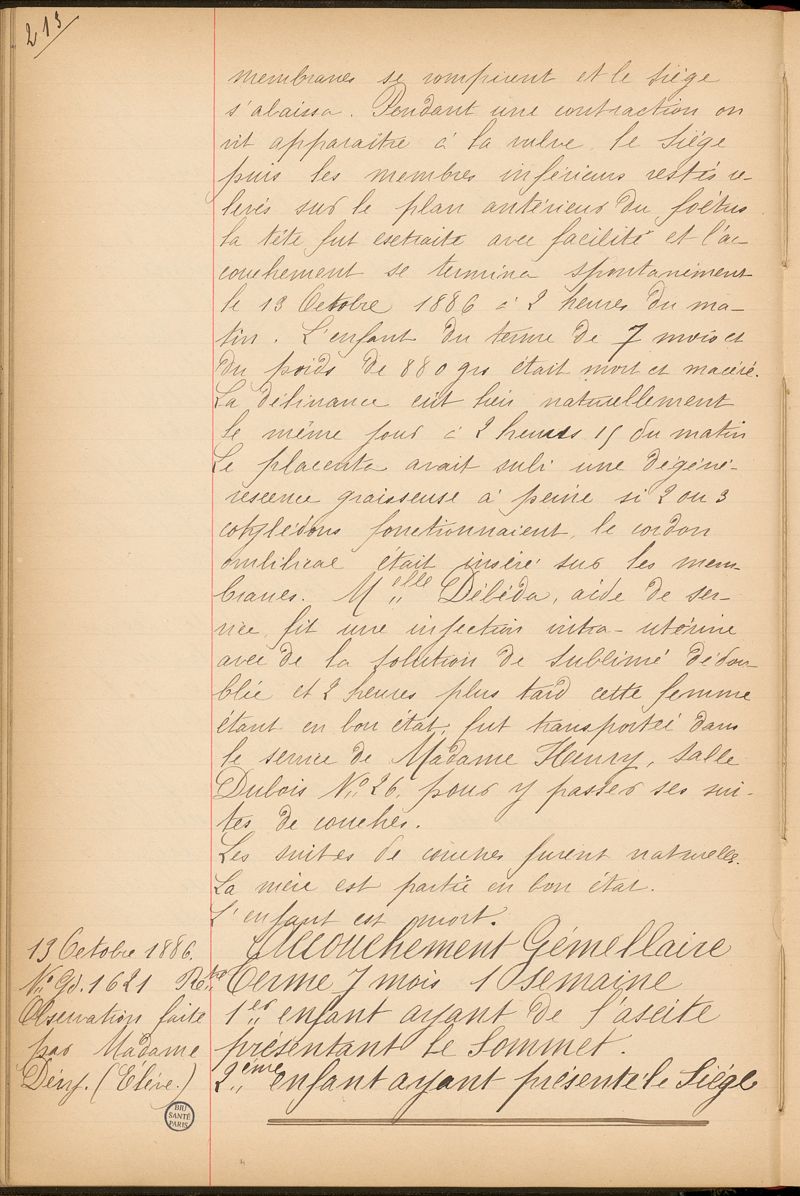 213
membranes se rompirent et le siège
s'abaissa. Pendant une contraction on
vit apparaitre à la vulve le siège
puis les membres inférieurs restés re-
levés sur le plan antérieur du foetus
la tête fut extraite avec facilité et l'ac-
couchement se termina spontanément
le 13 Octobre 1886 à 2 heures du ma-
tin. L'enfant du terme de 7 mois et
du poids de 880 grs était mort et macéré.
La délivrance eut lieu naturellement
le même jour à 2 heures 15 du matin
Le placenta avait subi une dégéné-
rescence graisseuse à peine si 2 ou 3
cotylédons fonctionnaient, le cordon
ombilical était inséré sur les mem-
branes. Melle Débéda, aide de ser-
vice, fit une injection intra-utérine
avec de la solution de sublimé dédou-
blée et 2 heures plus tard cette femme
étant en bon état, fut transportée dans
le service de Madame Henry, salle
Dubois No 26, pour y passer ses sui-
tes de couches.
Les suites de couches furent naturelles.
La mère est partie en bon état.
L'enfant est mort.
13 Octobre 1886.
No Gd. 1621
Observation faite
par Madame
(Elève.)
Accouchement Gémellaire
terme 7 mois 1 semaine
1er enfant ayant de l'ascite
présentant le Sommet.
2ème enfant ayant présenté le Siège
BIU
SANTÉ
PARIS